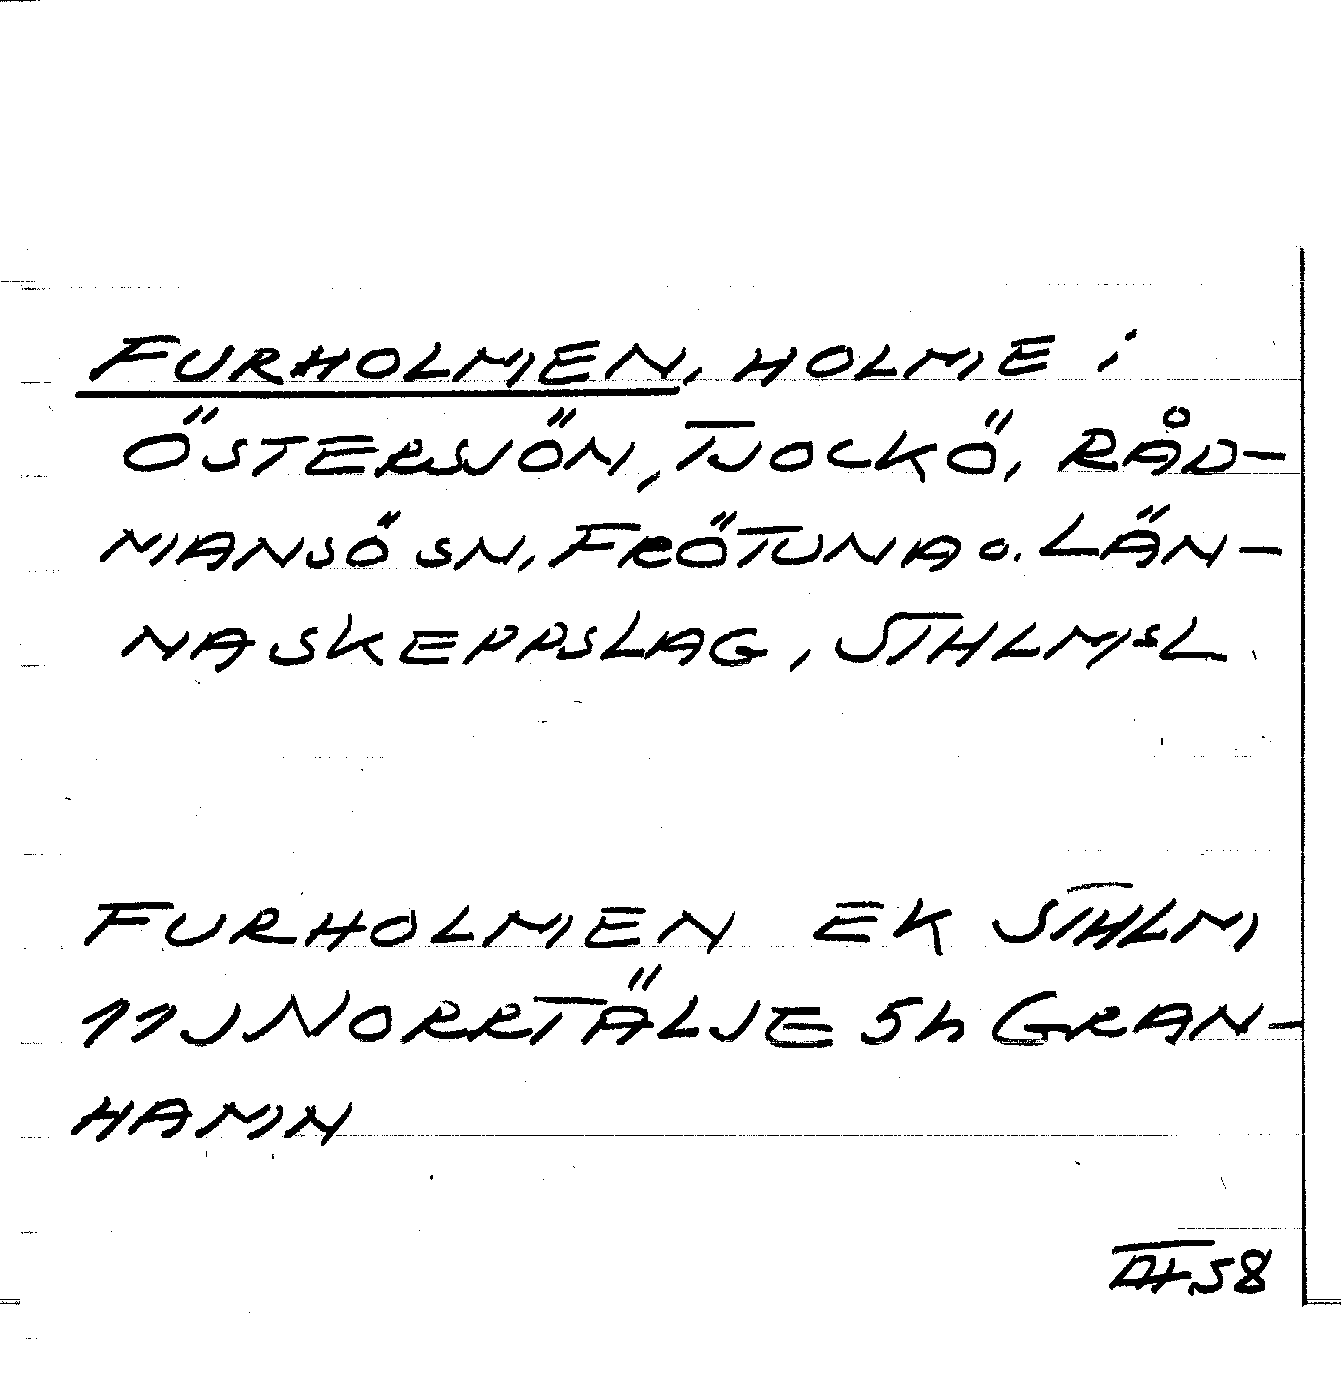 FURHOLMEN, HOLME i
ÖSTERSJÖN, TJOCKÖ, RÅD-
MANSÖ SN, FRÖTUNA o. LÄN-
NA SKEPPSLAG, STHLMSL
FURHOLMEN EK STHLM
11J NORRTÄLJE 5h GRAN-
HAMN
58